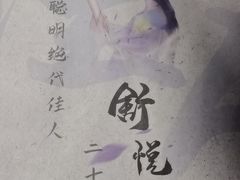 聪明绝代佳人
舒悦
二十